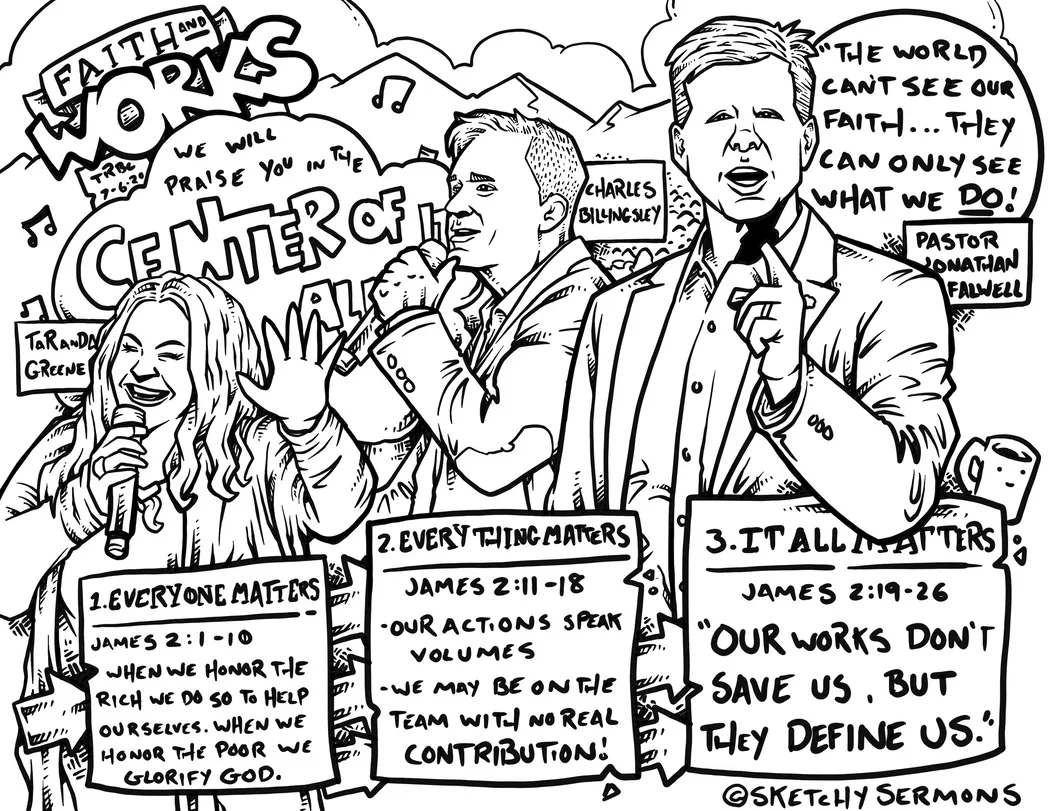 FAITH AND
WORKS
TRBC
7-6-20
WE WILL
PRAISE YOU IN THE
CENTER OF IT
ALL
TaRanDa
GREENE
CHARLES
BILLINGSLEY
"THE WORLD
CAN'T SEE OUR
FAITH... THEY
CAN ONLY SEE
WHAT WE DO!
PASTOR
JONATHAN
FALWELL
1. EVERYONE MATTERS
JAMES 2:1-10
WHEN WE HONOR THE
RICH WE DO SO TO HELP
OURSELVES. WHEN WE
HONOR THE POOR WE
GLORIFY GOD.
2. EVERYTHING MATTERS
JAMES 2:11-18
-OUR ACTIONS SPEAK
VOLUMES
-WE MAY BE ON THE
TEAM WITH NO REAL
CONTRIBUTION!
3. IT ALL MATTERS
JAMES 2:19-26
"OUR WORKS DON'T
SAVE US, BUT
THEY DEFINE US."
©SKETCHY SERMONS